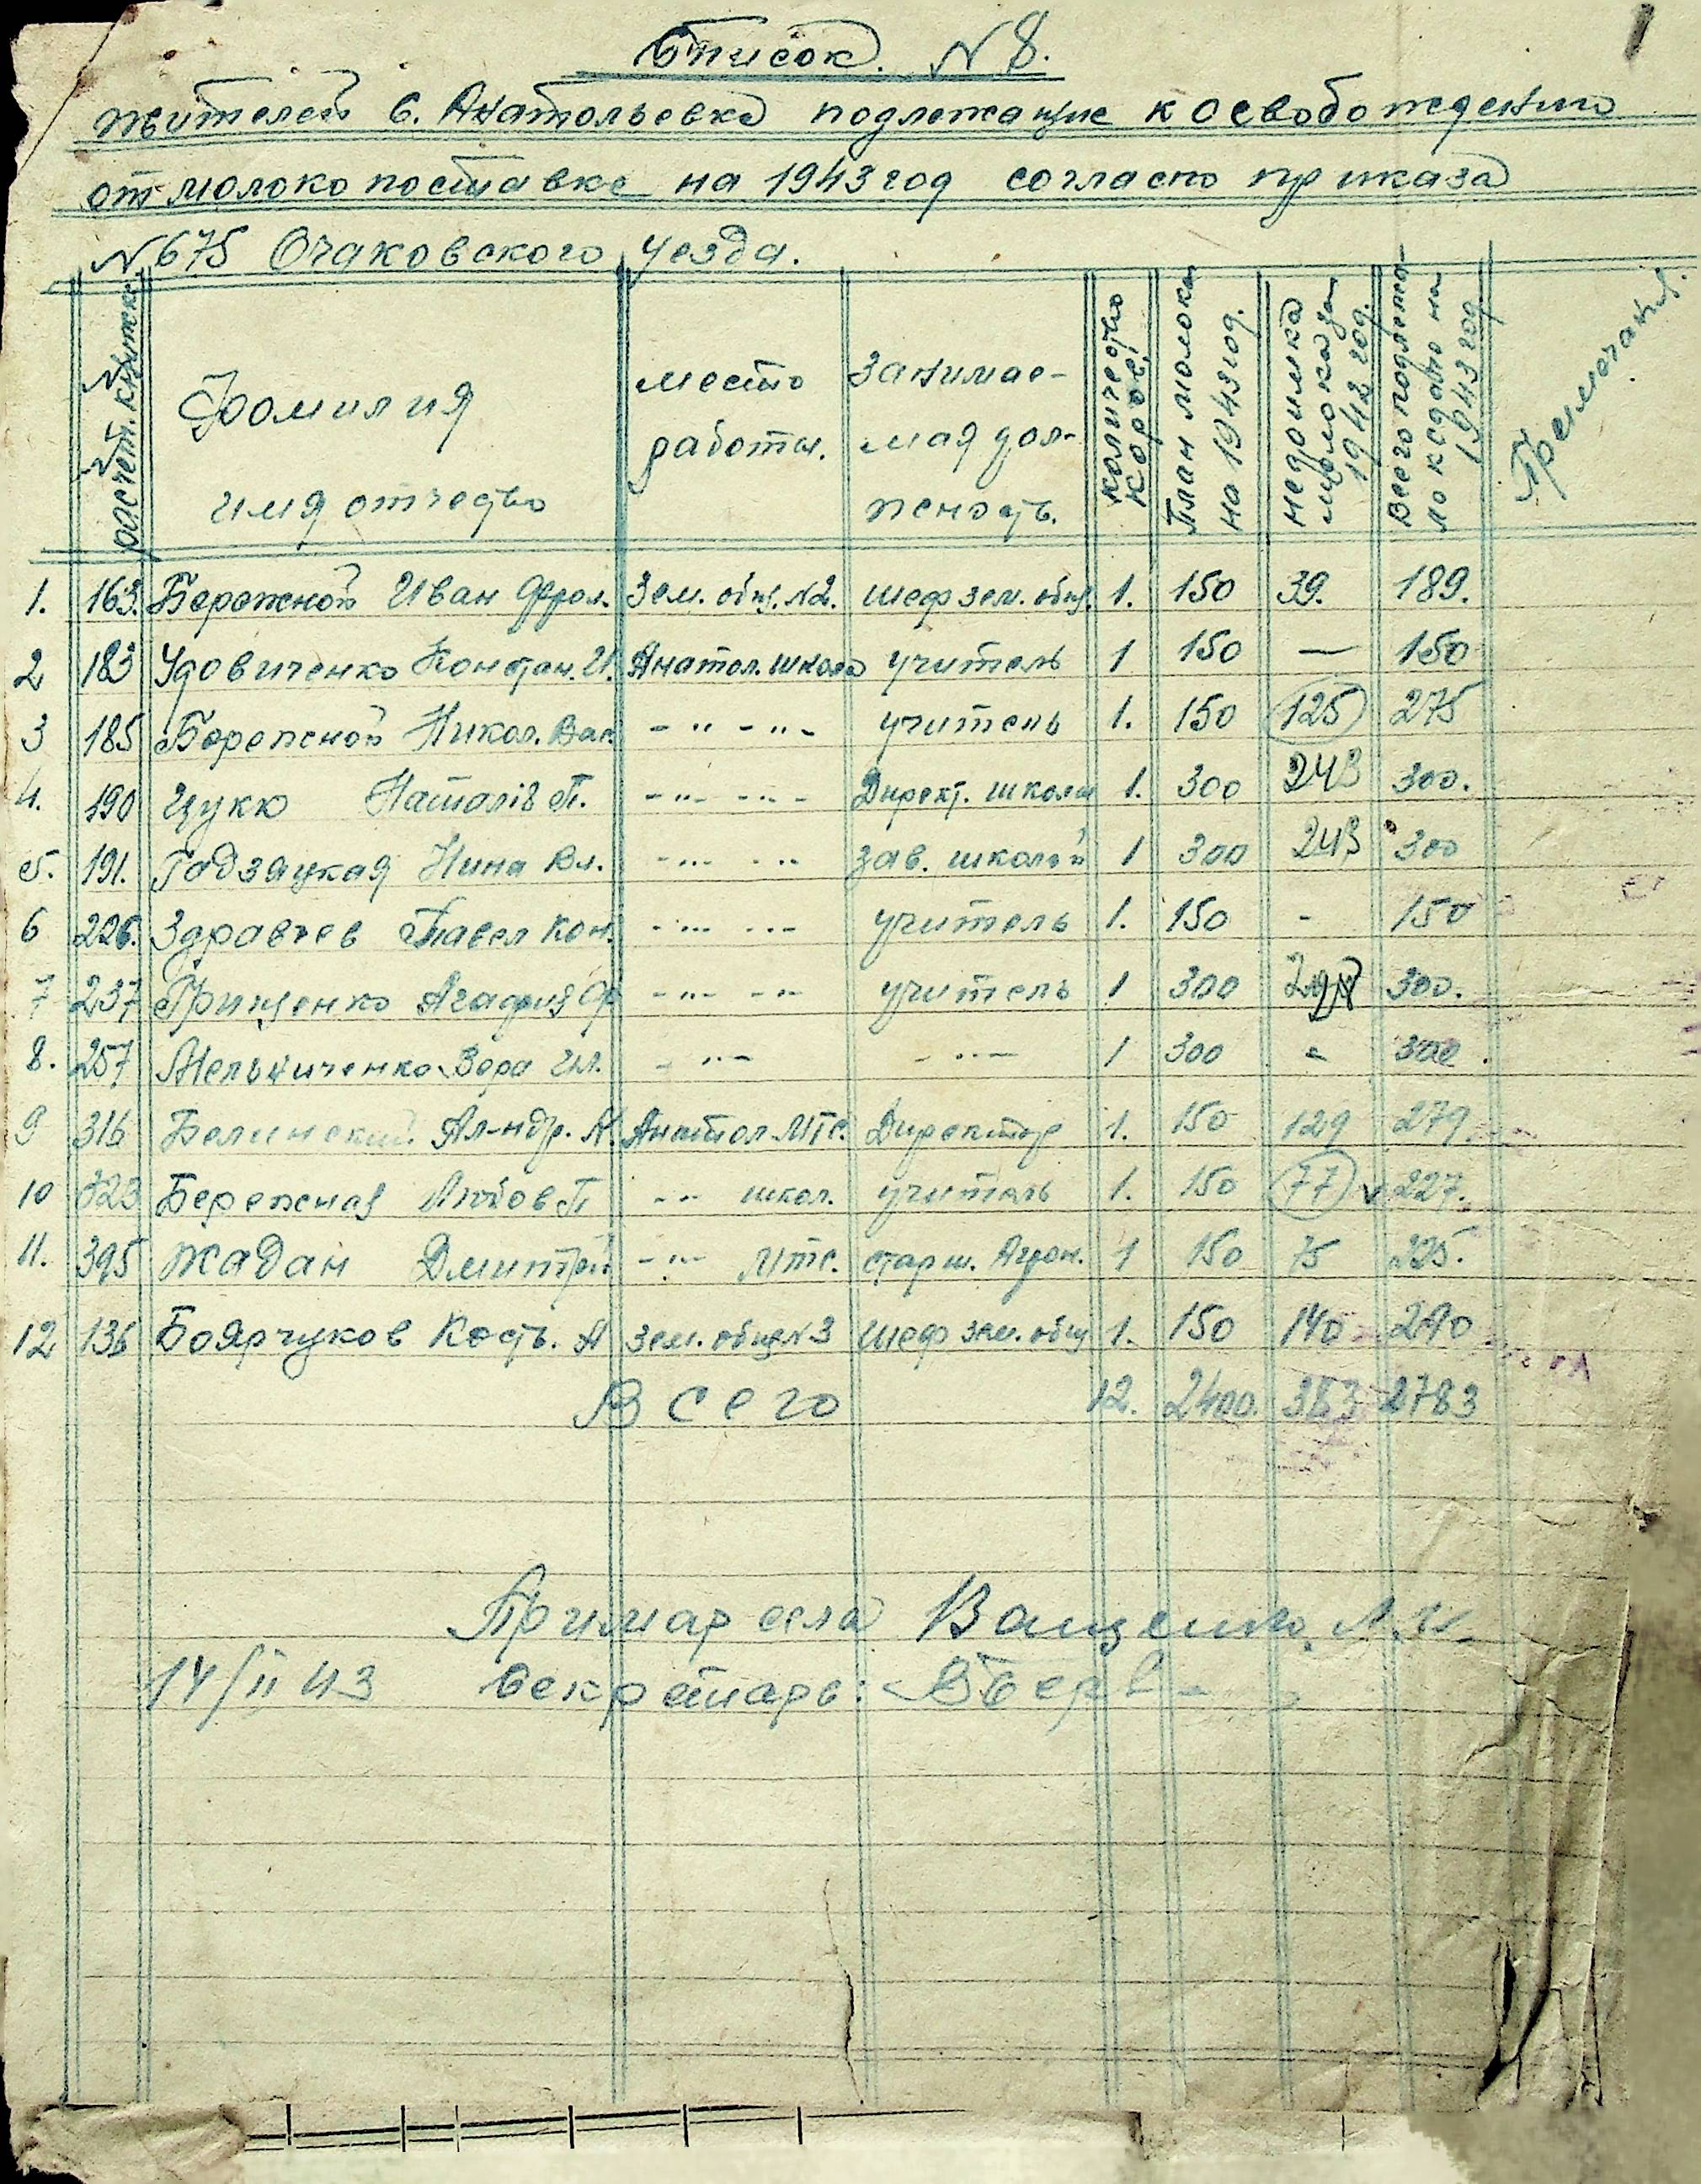 Список. N 8.
жителей с. Анатольевка подлежащие к освобождению
от молокопоставке на 1943 год согласно приказа
N 675 Очаковского уезда.
NN расчет. книжк. Фамилия имя отчество место работы. Занимаемая должность. количество коров. План молока на 1943 год. недоимка молока за 1942 год. Всего подлежало к сдаче на 1943 год Примечание.
1. 163. Бережной Иван Фрол. Зем. общ. N2. шеф зем. общ. 1. 150 39. 189.
2 183 Удовиченко Констан. И. Анатол. школа учитель 1 150 — 150
3 185 Бережной Никол. Вас. - " - " - учитель 1. 150 125 275
4. 190 Цукк Наталів П. - " - - " - Директ. школы 1. 300 243 300.
5. 191. Годзяцкая Нина Вл. - " - - " зав. школой 1 300 243 300
6 226. Здравчев Павел Кон. - " - - " - учитель 1. 150 - 150
7 237 Грищенко Агафия Ф - " - - " - учитель 1 300 300.
8. 257 Мельниченко Вера Ил. - " - - " - 1 300 - 300.
9 316 Белинский Ал-ндр. А. Анатол. МТС. Директор 1. 150 129 279
10 323 Бережная Любов П - " - школ. учитель 1. 150 77 227.
11. 395 Жадан Дмитрий - " - МТС. старш. Агрон. 1 150 75 225.
12 136 Боярчуков Кость. А зем. общ N3 шеф зем. общ 1. 150 140 290
Всего 12. 2400. 383 2783
Примар села Ващенко
14/II 43 Секретарь: